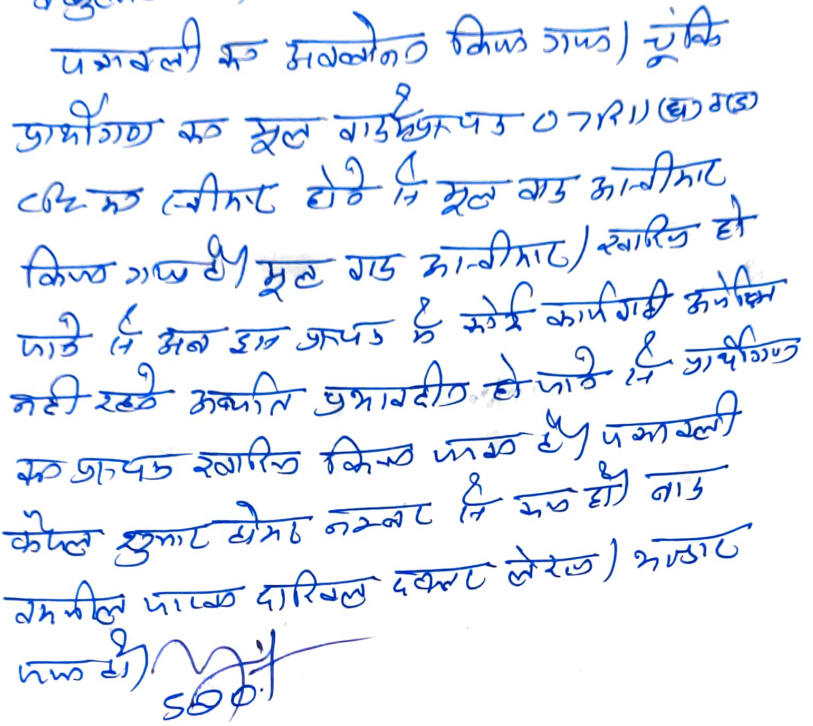 पत्रावली का अवलोकन किया गया। चूंकि
प्रार्थीगण का मूल वाद प्रा.पत्र O7R11 (घ) व (ड)
CPC का स्वीकार होने से मूल वाद अस्वीकार
किया गया है। मूल वाद अस्वीकार/खारिज हो
जाने से अब इस प्रा.पत्र में कोई कार्यवाही अपेक्षित
नहीं रहने अर्थात प्रभावहीन हो जाने से प्रार्थीगण
का प्रा.पत्र खारिज किया जाता है। पत्रावली
फैसल शुमार होकर नम्बर से कम हो। बाद
तकमील जाब्ता दाखिल दफ्तर होवे।
जाता है।
SDO